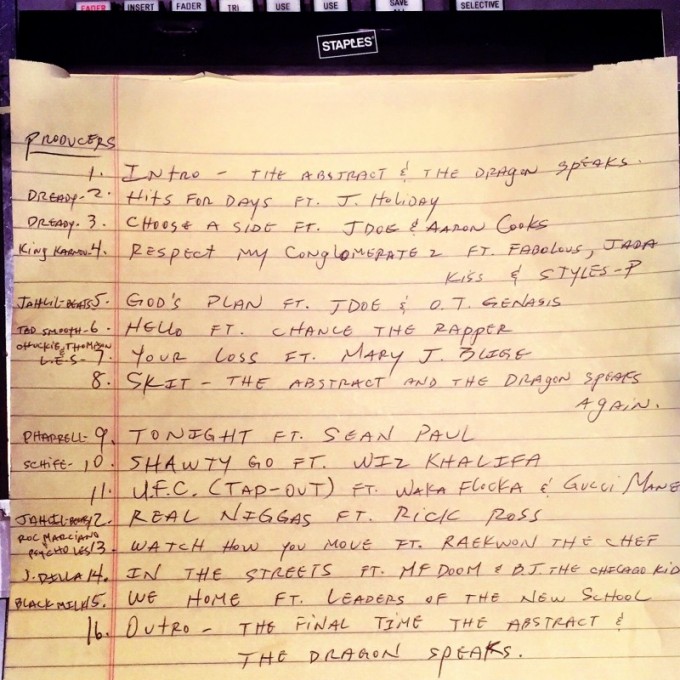 FADER INSERT FADER TRI USE USE SAVE ALL SELECTIVE
STAPLES
PRODUCERS
1. INTRO - THE ABSTRACT & THE DRAGON SPEAKS.
DREADY - 2. HITS FOR DAYS FT. J. HOLIDAY
DREADY. 3. CHOOSE A SIDE FT. JDOE & AARON COOKS
KING KARNOV - 4. RESPECT MY CONGLOMERATE 2 FT. FABOLOUS, JADA
KISS & STYLES-P
JAHLIL-BEATS 5. GOD'S PLAN FT. JDOE & O.T. GENASIS
TAD SMOOTH - 6. HELLO FT. CHANCE THE RAPPER
CHUCKIE THOMPSON &
L.E.S - 7. YOUR LOSS FT. MARY J. BLIGE
8. SKIT - THE ABSTRACT AND THE DRAGON SPEAKS
AGAIN.
PHARRELL - 9. TONIGHT FT. SEAN PAUL
SCHIFE - 10. SHAWTY GO FT. WIZ KHALIFA
11. U.F.C. (TAP-OUT) FT. WAKA FLOCKA & GUCCI MANE
JAHIL-BEATS 12. REAL NIGGAS FT. RICK ROSS
ROC MARCIANO &
PSYCHO LES 13. WATCH HOW YOU MOVE FT. RAEKWON THE CHEF
J. DILLA 14. IN THE STREETS FT. MF DOOM & B.J. THE CHICAGO KID
BLACK MILK 15. WE HOME FT. LEADERS OF THE NEW SCHOOL
16. OUTRO - THE FINAL TIME THE ABSTRACT &
THE DRAGON SPEAKS.